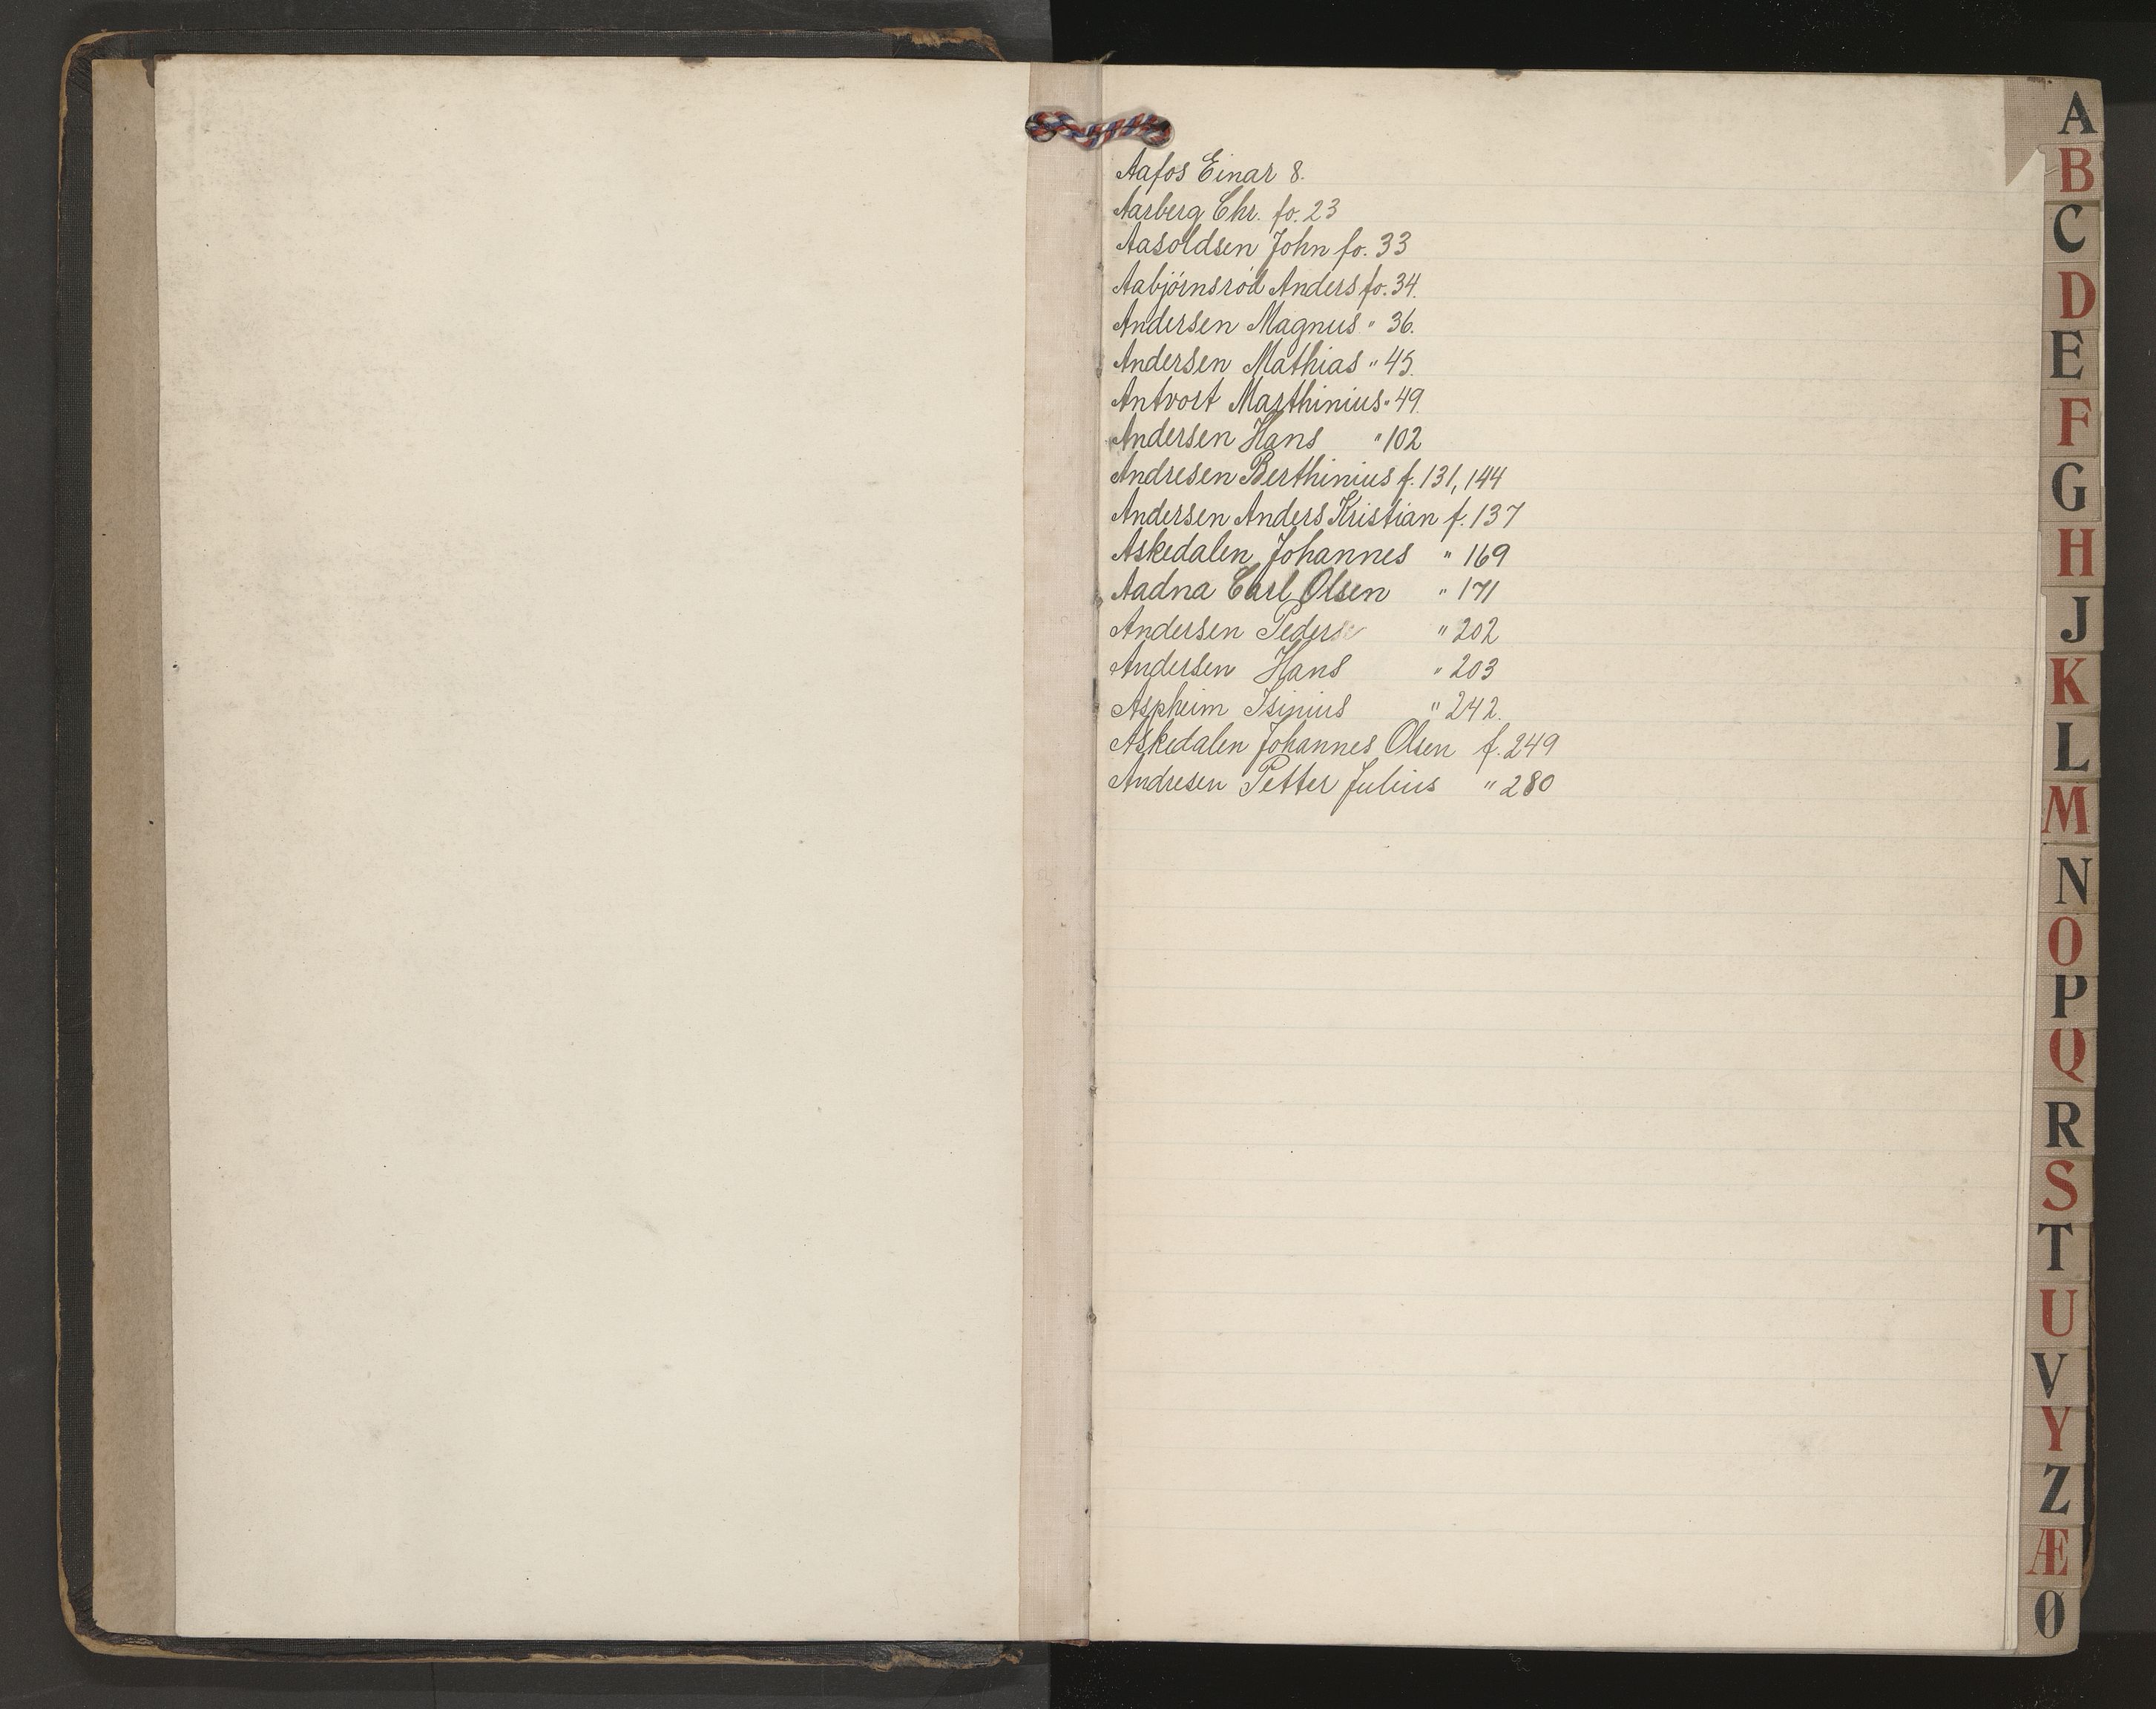 Aafos Einar 8.
Aarberg Chr. fo. 23
Aasoldsen John fo. 33
Aabjörnsröd Anders fo. 34.
Andersen Magnus " 36.
Andersen Mathias " 45.
Antvort Marthinius " 49.
Andersen Hans " 102
Andresen Berthinius f. 131, 144
Andersen Anders Kristian f. 137
Askedalen Johannes " 169
Aadna Carl Olsen " 171
Andersen Peder " 202
Andersen Hans " 203
Aspheim Isinius " 242.
Askedalen Johannes Olsen f. 249
Andresen Petter Julius " 280
A
B
C
D
E
F
G
H
J
K
L
M
N
O
P
Q
R
S
T
U
V
Y
Z
Æ
Ø